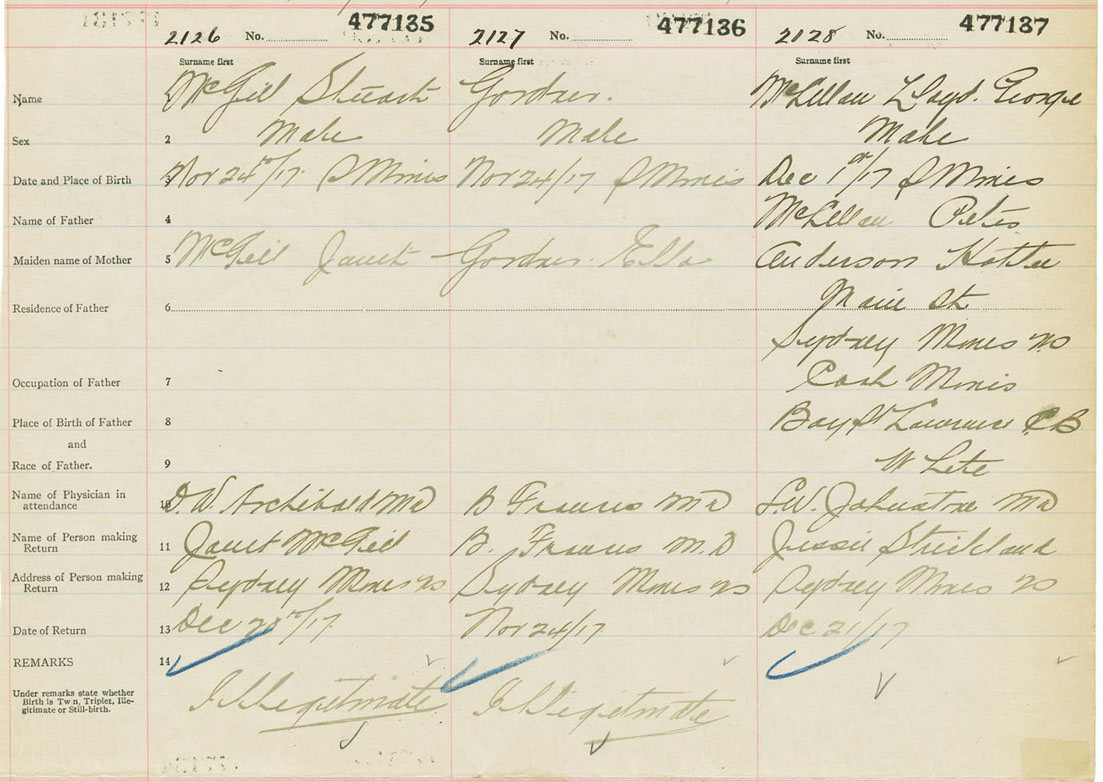 2126 No. 477135 2127 No. 477136 2128 No. 477137
Surname first Surname first Surname first
Name McGill Stuart Gordner. McLellan Lloyd George
Sex 2 Male Male Male
Date and Place of Birth 3 Nov 24th/17 S Mines Nov 24/17 S Mines Dec 1st/17 S Mines
Name of Father 4 McLellan Peter
Maiden name of Mother 5 McGill Janet Gordner. Ella Anderson
Residence of Father 6 Main St
Sydney Mines NS
Occupation of Father 7
Place of Birth of Father 8 Bay St Lawrence CB
and
Race of Father. 9 White
Name of Physician in
attendance 10 D.W. Archibald MD B Francis MD L.W. Johnstone MD
Name of Person making
Return 11 Janet McGill B. Francis M.D Jessie Strickland
Address of Person making
Return 12 Sydney Mines NS Sydney Mines NS Sydney Mines NS
Date of Return 13 Dec Nov 24/17 Dec 21/17
REMARKS 14
Under remarks state whether
Birth is Twin, Triplet, Ille-
gitimate or Still-birth.
Illegitimate Illigitmate